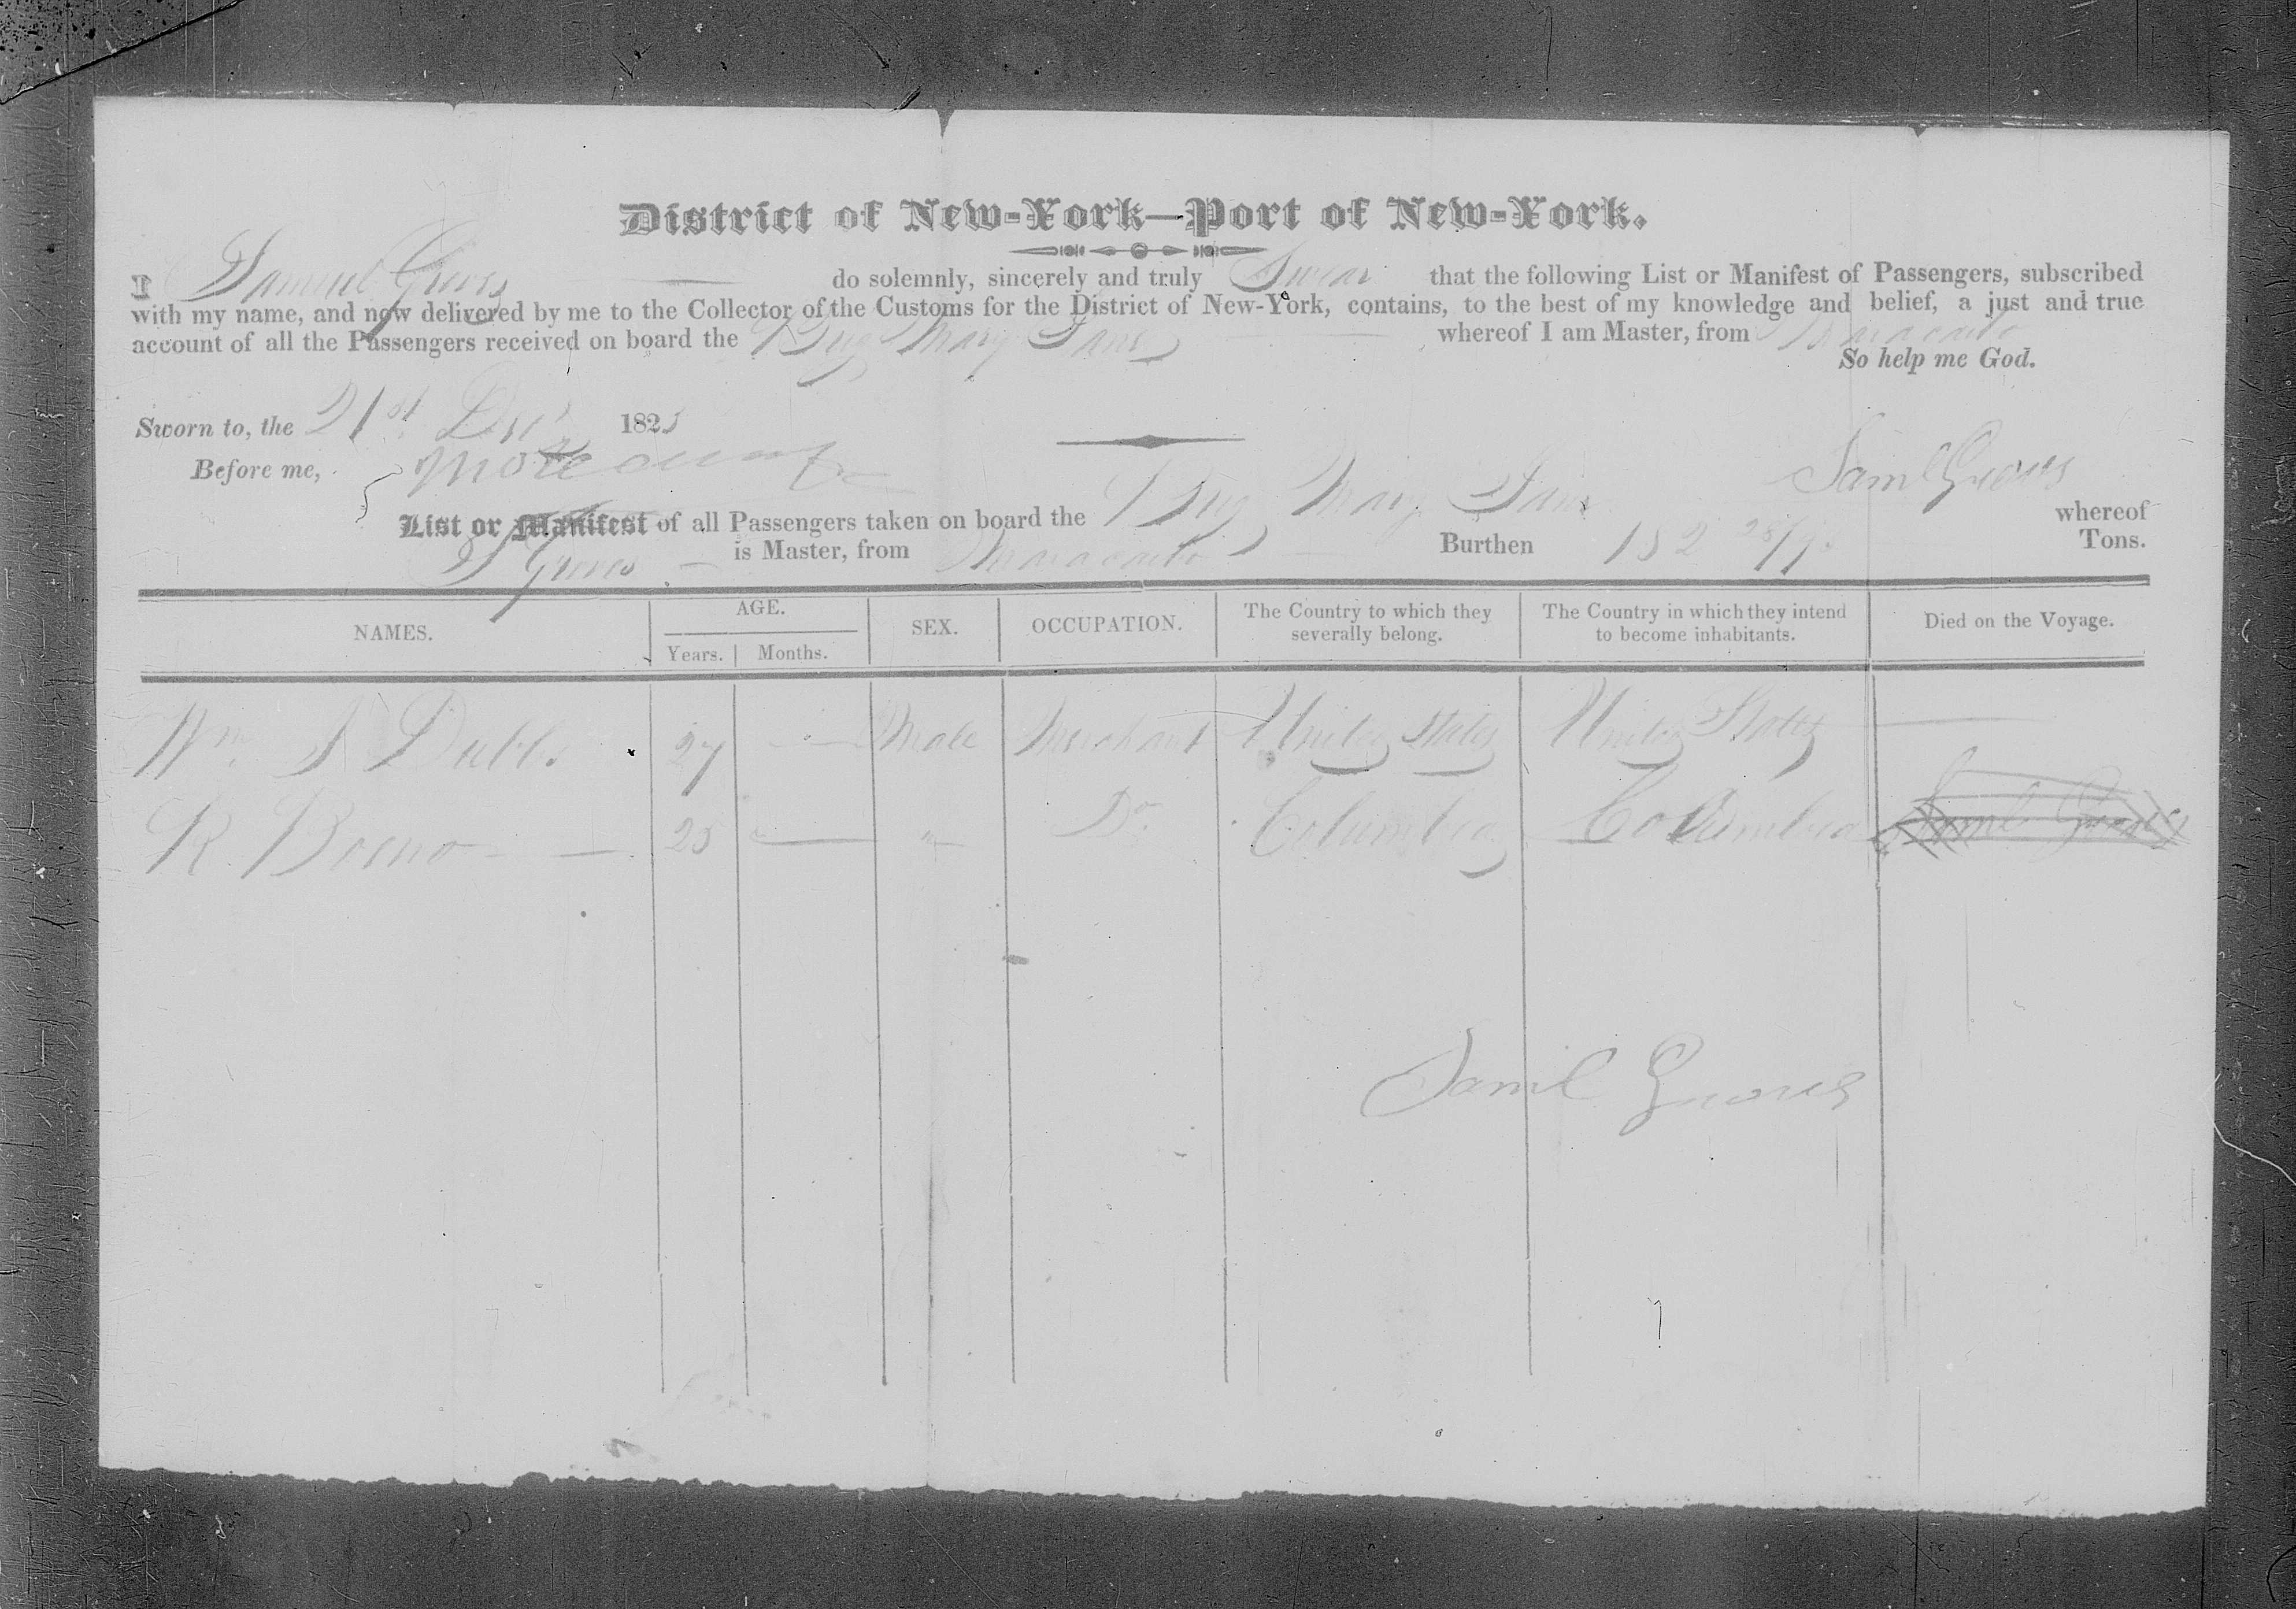 District of New-York—Port of New-York.
I Samuel Graves do solemnly, sincerely and truly Swear that the following List or Manifest of Passengers, subscribed
with my name, and now delivered by me to the Collector of the Customs for the District of New-York, contains, to the best of my knowledge and belief, a just and true
account of all the Passengers received on board the Brig Mary Jane whereof I am Master, from Maracaibo
So help me God.
Sworn to, the 21st Decr 182
Before me,
Saml Graves
List or Manifest of all Passengers taken on board the Brig Mary Jane whereof
S Graves is Master, from Maracaibo Burthen 182 Tons.
NAMES. AGE. Years. Months. SEX. OCCUPATION. The Country to which they severally belong. The Country in which they intend to become inhabitants. Died on the Voyage.
Wm S Dubbs 27 — Male Merchant United States United States —
R. 25 — " Do Columbia Columbia
Saml Graves